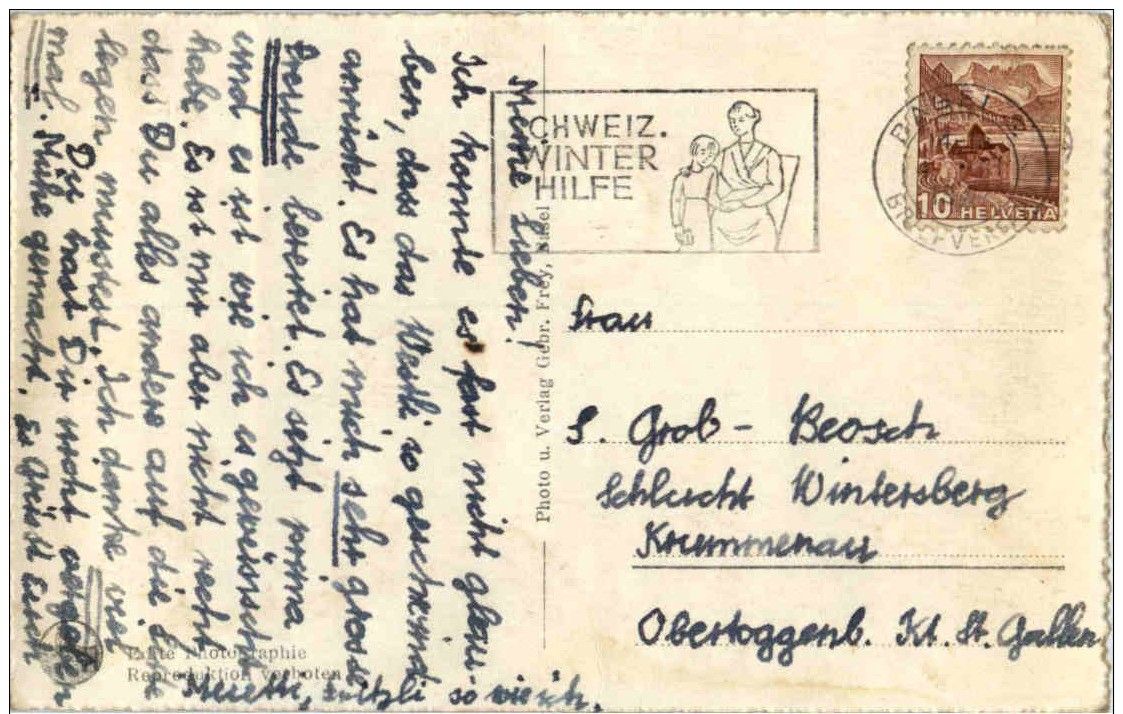 Meine Lieben!
Ich konnte es fast nicht glau-
ben, dass das Westli so geschwind
anrückt. Es hat mich sehr grosse
Freude bereitet. Es sitzt prima
und es ist wie ich es gewünscht
habe. Es ist mir aber nicht recht
dass Du alles anders auf die
legen musstest. Ich danke viel
mal. Du hast Dir nicht vergeben
Mühe gemacht. Es Grüsst Euch
so wie ich.
Echte Photographie
Reproduktion verboten
Photo u. Verlag Gebr. Frey, Basel
SCHWEIZ.
WINTER
HILFE
BASEL
BRIEFVERS
10 HELVETIA
Frau
S. Grob - Beosch
Schlucht Wintersberg
Krummenau
Obertoggenb. Kt. St. Gallen